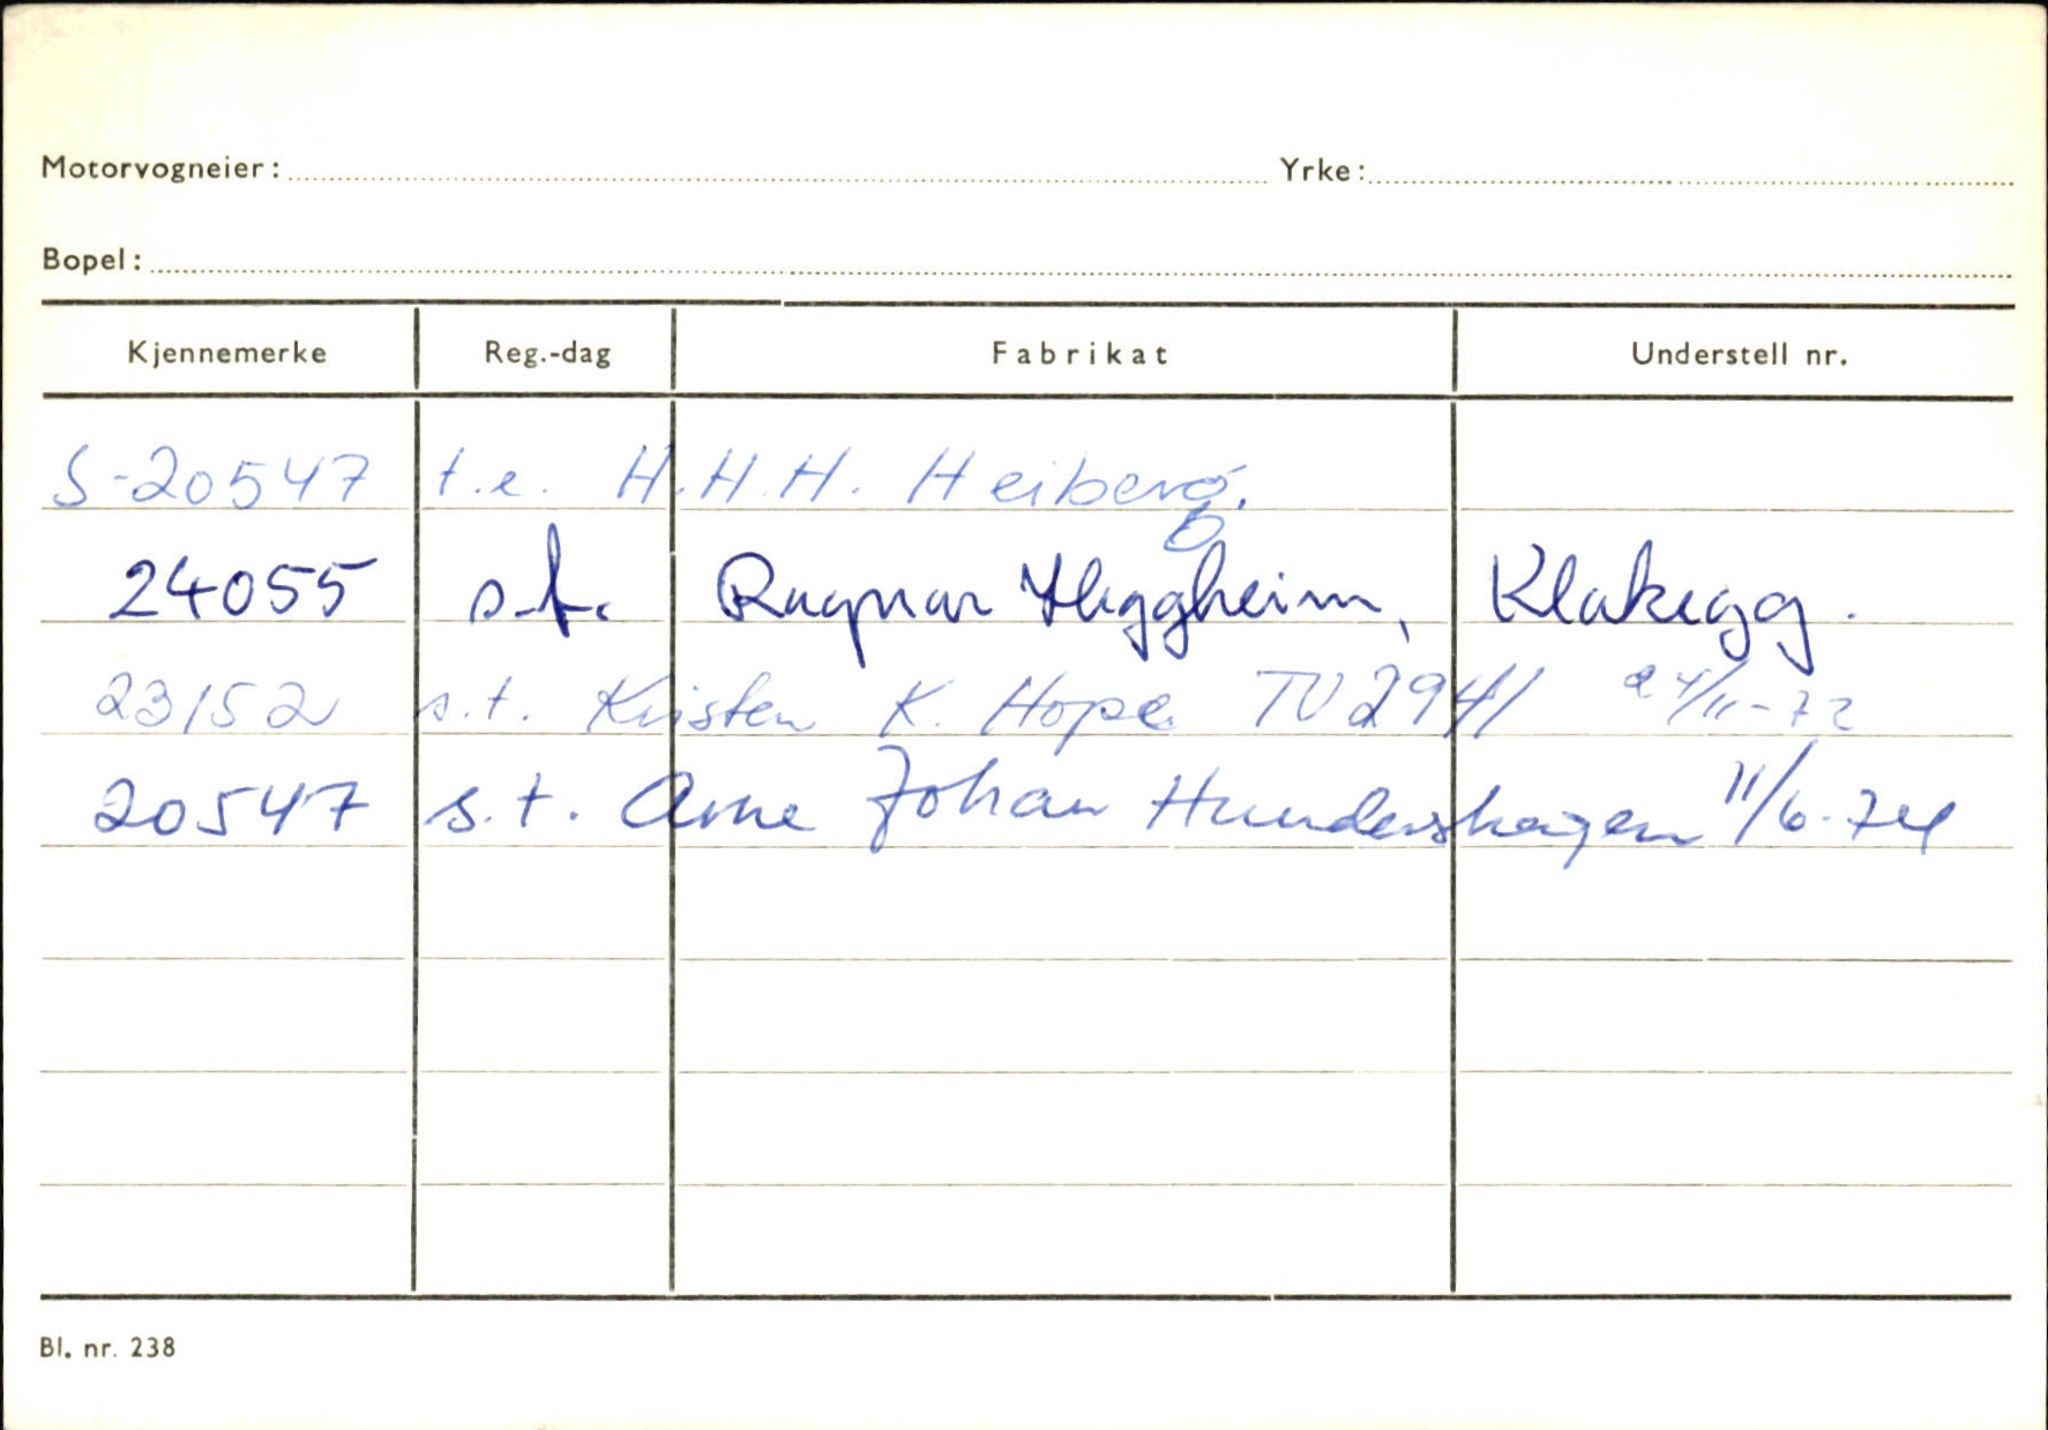 Motorvogneier: Yrke:
Bopel:
Kjennemerke Reg.-dag Fabrikat Understell nr.
S-20547 t.e. H.H.H. Heiberg.
24055 s.f. Ragnar Heggheim, Klakegg.
23152 s.t. Kristen K. Hope TU2941 24/11-72
20547 s.t. Arne Johan Hundershagen 11/6-74
Bl. nr. 238